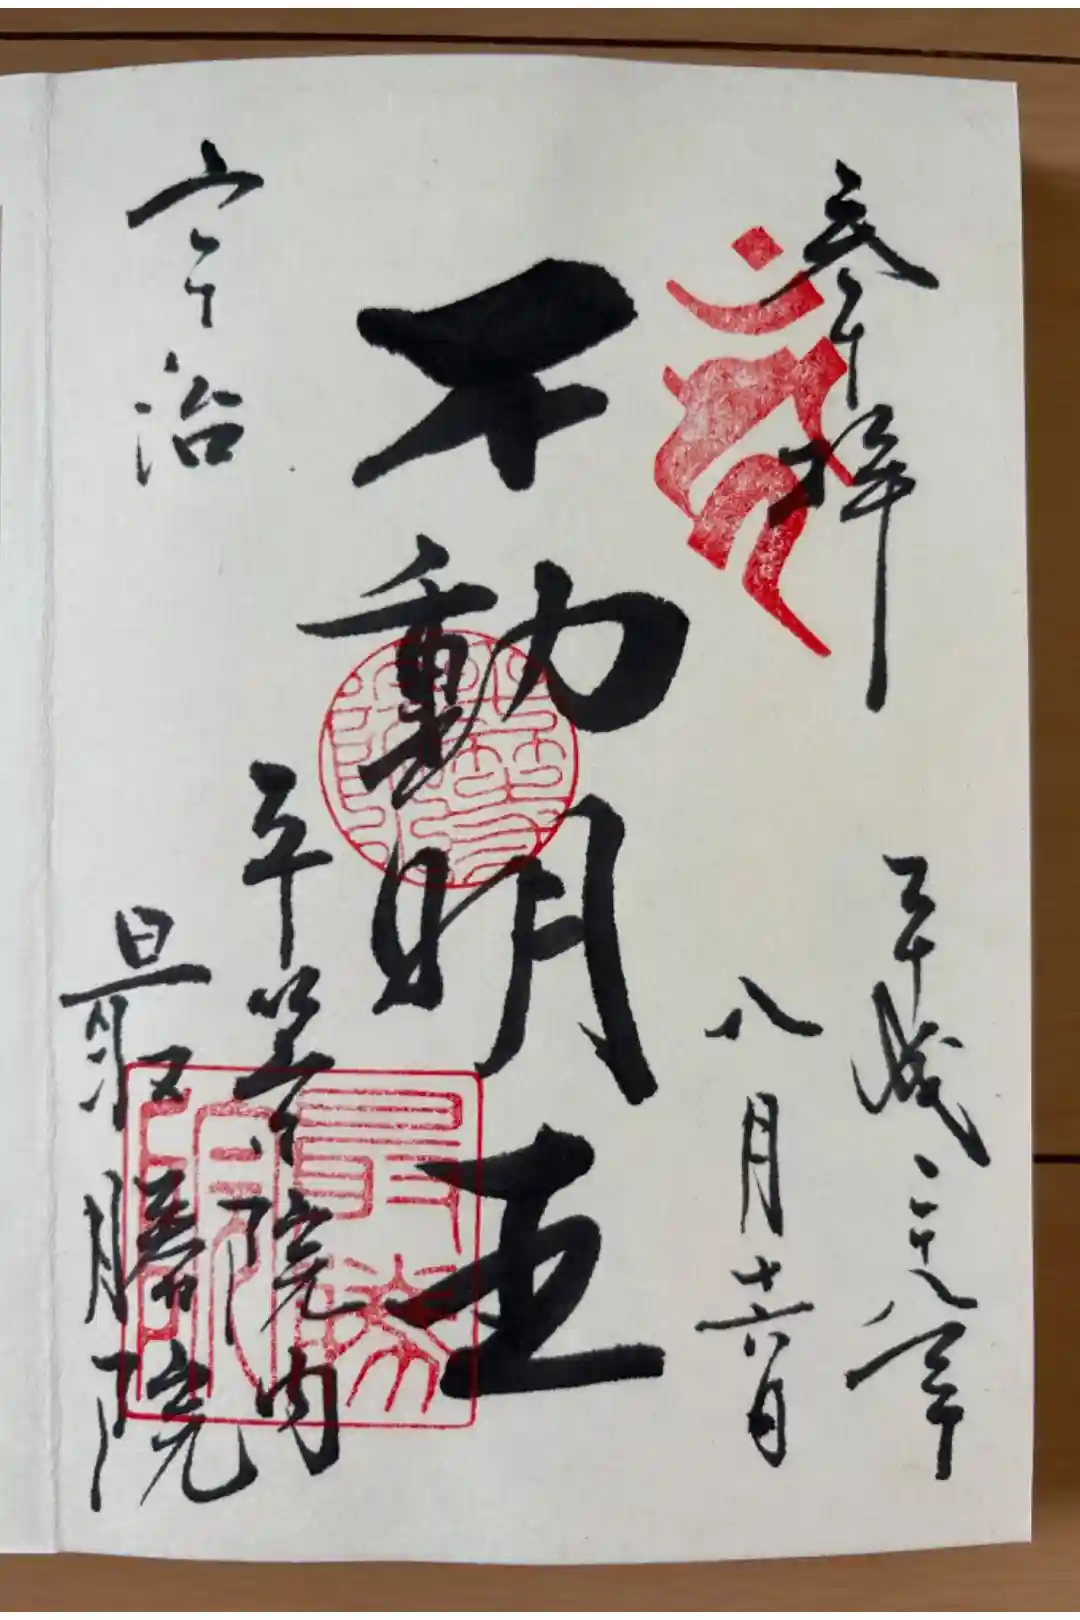 奉拝
平成二十八年
八月十六日
不動明王
宇治
平等院内
最勝院
最勝院印